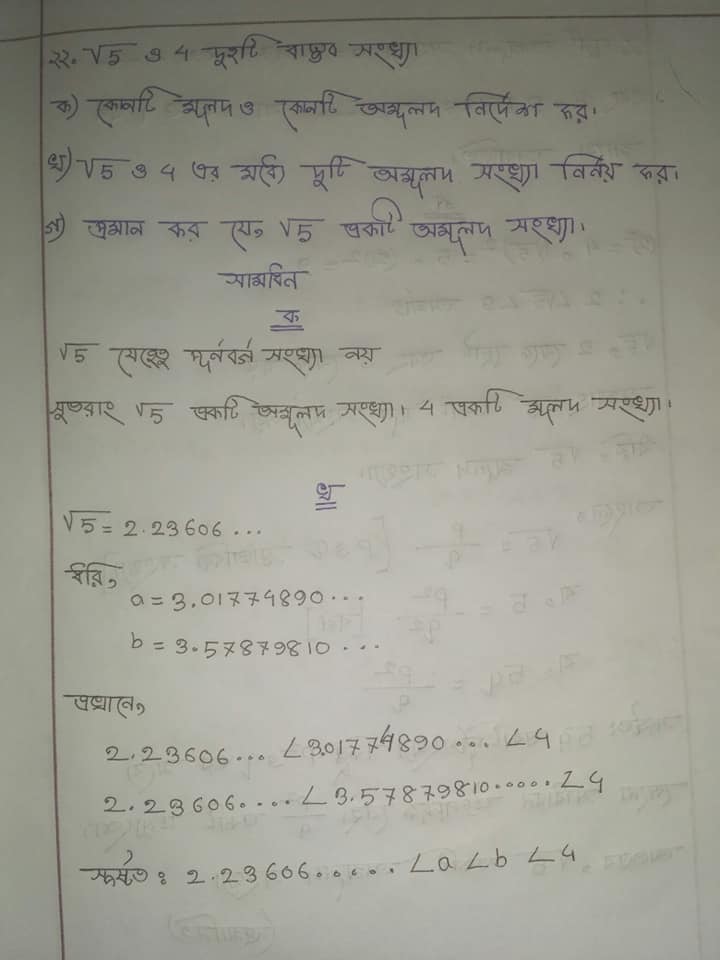 ২২. √5 ও 4 দুইটি বাস্তব সংখ্যা
ক) কোনটি মূলদ ও কোনটি অমূলদ নির্দেশ কর।
খ) √5 ও 4 এর মধ্যে দুটি অমূলদ সংখ্যা নির্নয় কর।
গ) প্রমান কর যে, √5 একটি অমূলদ সংখ্যা।
সামধান
ক
√5 যেহেতু পূর্নবর্গ সংখ্যা নয়
সুতরাং √5 একটি অমূলদ সংখ্যা। 4 একটি মূলদ সংখ্যা।
খ
√5 = 2.23606...
ধরি,
a = 3.01774890...
b = 3.57879810...
এখানে,
2.23606... <3.01774890... <4
2.23606.... <3.57879810..... <4
স্পষ্টত: 2.23606...... <a <b <4